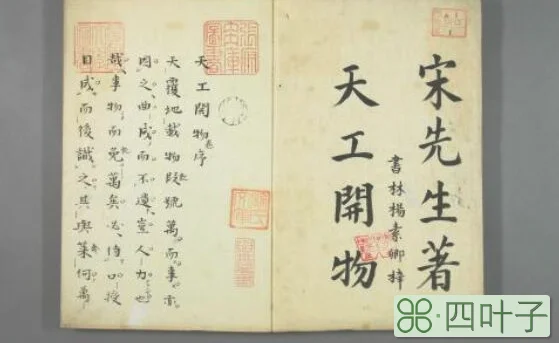 宋先生著
書林楊素卿梓
天工開物
天工開物卷序
天覆地載物數號萬而事亦
因之曲成而不遺豈人力也
哉事物而既萬矣必待口授
目成而後識之其與幾何萬
四叶子